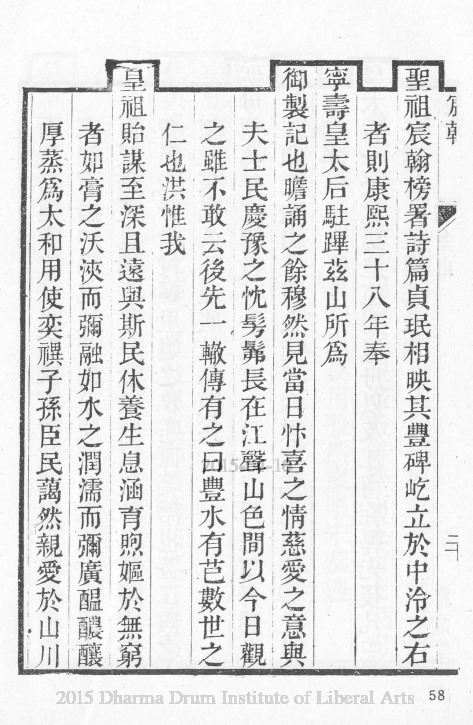 宸翰
二
聖祖宸翰榜署詩篇貞珉相映其豐碑屹立於中泠之右
者則康熙三十八年奉
寧壽皇太后駐蹕茲山所爲
御製記也瞻誦之餘穆然見當日忭喜之情慈愛之意與
夫士民慶豫之忱髣髴長在江聲山色間以今日觀
之雖不敢云後先一轍傳有之曰豐水有芑數世之
仁也洪惟我
皇祖貽謀至深且遠與斯民休養生息涵育煦嫗於無窮
者如膏之沃浹而彌融如水之潤濡而彌廣醖釀
厚蒸爲太和用使奕禩子孫臣民藹然親愛於山川
58
2015 Dharma Drum Institute of Liberal Arts